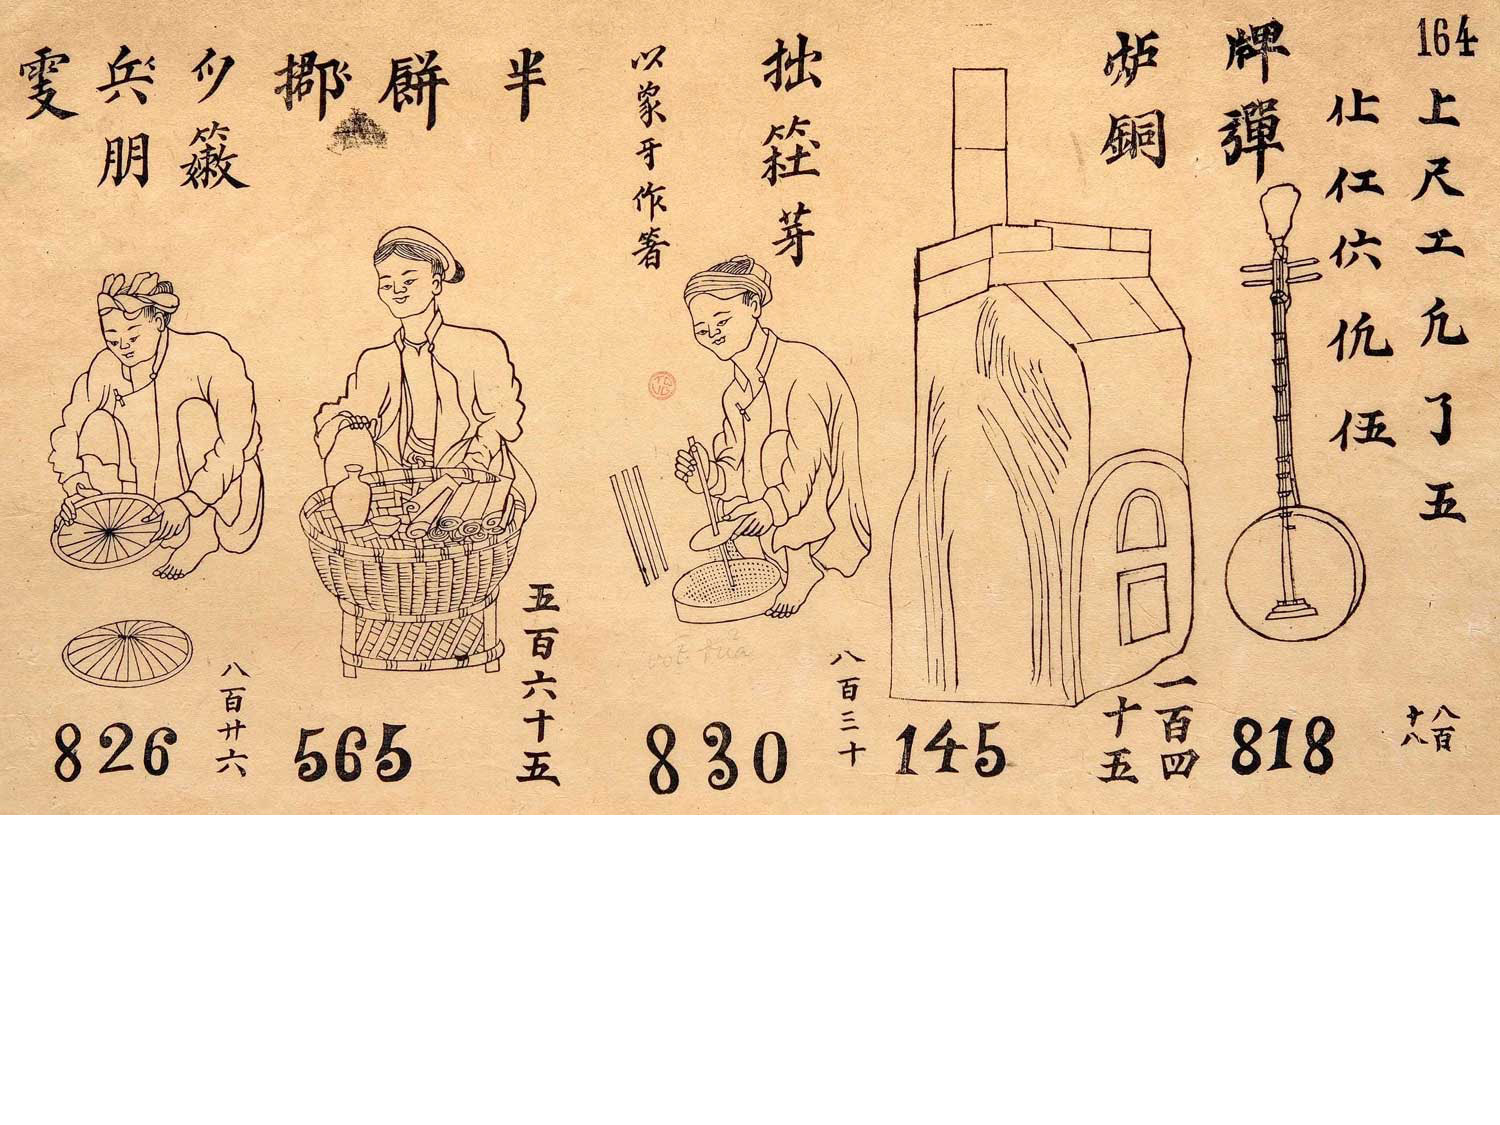 164
上尺工凢了五
仩仜㐲伍
八百
十八
牌彈
818
炉銅
一百四
十五
145
拙芽
以象牙作箸
八百三十
830
vót đũa
半
餅
五百六十五
565
朋
八百廿六
826